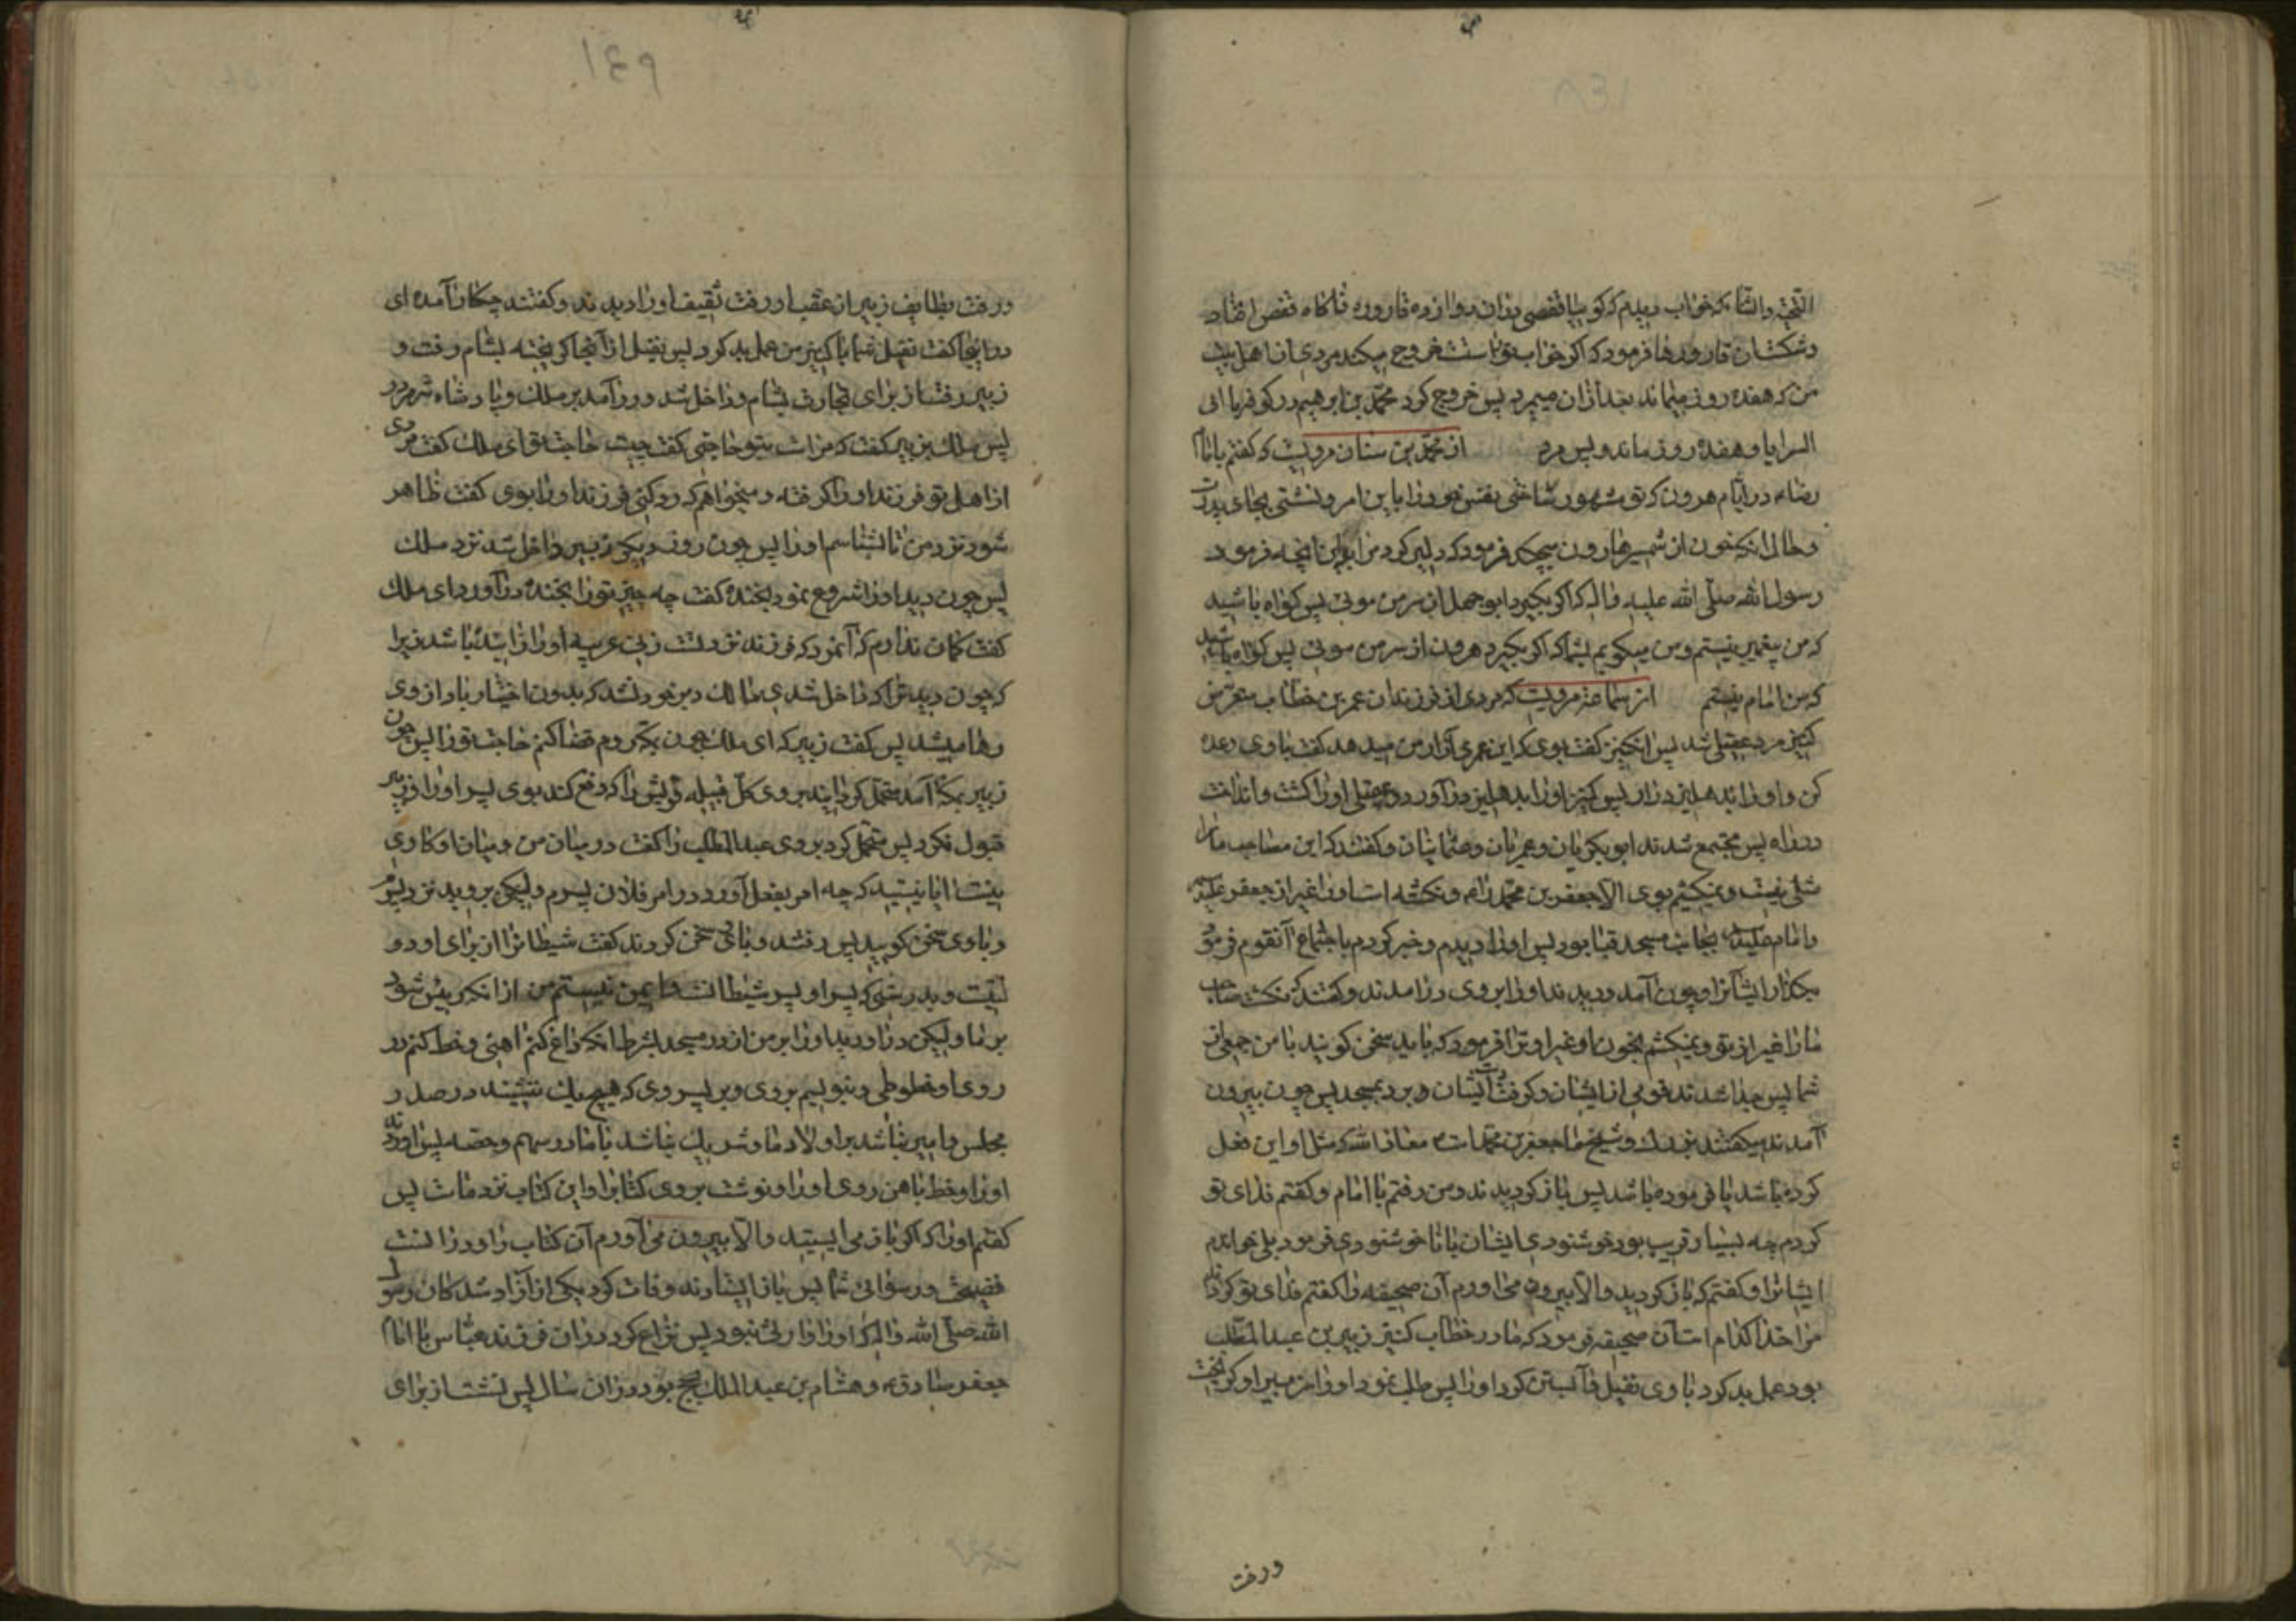 التحیة والثناء که بخواب دیدم که کویا قفصی در آن دوازده قاروره ناکاه قفص افتاد
و شکست آن قاروره‌ها فرمود که اکر خواب تو راست خروج میکند مردی از اهل بیت
من که هفده روز میماند بعد از آن میمیرد پس خروج کرد محمد بن ابرهیم در کوفه با ابی
السرایا و هفده روز ماند و پس مرد از محمد بن سنان مرویست که کفتم با امام
رضا در ایام هرون که تو مشهور ساختی نفس خود را باین امر و نشستی بجای پدرت
و حال انکه خون از شمشیر هارون میچکد فرمود که دلیر کرد مرا بر این آنچه فرمود
رسول الله صلی الله علیه و آله که اکر بکیرد ابو جهل از سر من موئی پس کواه باشید
که من پیغمبر نیستم و من میکویم بشما که اکر بکیرد هرون از سر من موئی پس کواه باشید
که من امام نیستم از سماعه مرویست که مردی از فرزندان عمر بن خطاب متعرض
کنیز مرد عقیلی شد پس آن کنیز کفت بوی که این عمری آزار من میدهد کفت با وی وعده
کن و او را بدهلیز درآر پس کنیز او را بدهلیز درآورد و عقیلی او را کشت و انداخت
در راه پس مجتمع شدند ابو بکریان و عمریان و عثمانیان و کفتند که این مصاحب ما را
مثلی نیست و نمیکشیم بوی الا جعفر بن محمد را و نکشته است او را غیر از جعفر علیه
و امام بجانب مسجد قبا بود پس او را دیدم و خبر کردم باجتماع آنقوم فرمود
بکذار ایشانرا و چون آمد و دیدند او را بر وی درآمدند و کفتند که نکشت صاحب
ما را غیر از تو و نمیکشیم بخون او غیر او ترا فرمود که باید سخن کویند با من جمعی از
شما پس جدا شدند قومی از ایشان و کرفت دست ایشان و برد بمسجد پس چون بیرون
آمدند میکفتند بزرک و شیخ ما جعفر بن محمد است معاذ الله که مثل او این فعل
کرده باشد یا فرموده باشد پس باز کردیدند و من رفتم با امام و کفتم فدای تو
کردم چه بسیار قریب بود خوشنودی ایشان با ناخوشنودی فرمود بلی خواندم
ایشانرا و کفتم که باز کردید و الا بیرون می‌آورم آن صحیفه را کفتم فدای تو کرداند
مرا خدا کدام است آن صحیفه فرمود که مادر خطاب کنیز زبیر بن عبدالمطلب
بود عمل بد کرد با وی نفیل و آبستن کرد او را پس طلب نمود او را زبیر او کریخت
و رفت
و رفت بطایف زبیر از عقب او رفت ثقیف او را دیدند و کفتند چکار آمده‌ای
در اینجا کفت نفیل شما با کنیز من عمل بد کرد پس نفیل از آنجا کریخته بشام رفت و
زبیر رفت از برای تجارت بشام و داخل شد و درآمد بر ملک و پادشاه
پس ملک بزبیر کفت که مراست بتو حاجتی کفت چیست حاجت تو ای ملک کفت مردی
از اهل تو فرزند او را کرفته و میخواهم که رد کنی فرزند او را بوی کفت ظاهر
شود نزد من تا بشناسم او را پس چون روز دیکر زبیر داخل شد نزد ملک
پس چون دید او را شروع نمود بخنده کفت چه چیز تو را بخنده درآورد ای ملک
کفت کمان ندارم که آنمرد که فرزند نزد تست زنی عربیه او را زائیده باشد زیرا
که چون دید ترا که داخل شدی مالک دبر خود نشد که بدون اختیار باد از وی
رها میشد پس کفت زبیر که ای ملک چون بمکه روم قضا کنم حاجت تو را پس چون
زبیر بمکه آمد متحمل کردانید بر وی کل قبیله قریش را که دفع کند بوی پسر او را زبیر
قبول نکرد پس متحمل کرد بر وی عبدالمطلب را کفت در میان من و میان او کاری
نیست آیا نیستید که چه امر بفعل آورد در امر فلان پسرم ولیکن بروید نزد پسرم
و با وی سخن کویید پس رفتند و با وی سخن کردند کفت شیطانرا از برای او دو
لتیست و بدرستی که پسر او پسر شیطانست و ایمن نیستم من از آنکه رئیس شود
بر ما ولیکن درآورید او را بر من از در مسجد بشرط آنکه داغ کنم آهنی و خط کنم در
روی او خطوطی و بنویسم بر وی و بر پسر وی که هیچ یک ننشیند در صدر
مجلس و امیر نباشد بر اولاد ما و شریک نباشد با ما در سهم و حصه پس آوردند
او را و خط با آهن روی او را و نوشت بر وی کتابرا و این کتاب نزد ماست پس
کفتم او را که اکر باز می‌ایستید و الا بیرون می‌آورم آن کتاب را و در آنست
فضیحت و رسوائی شما پس باز ایستادند و وفات کرد یکی از آزاد شدکان رسول
الله صلی الله و آله که او را وارثی نبود پس نزاع کرد در آن فرزند عباس با امام
جعفر صادق و هشام بن عبدالملک بحج بود در آن سال پس نشست از برای